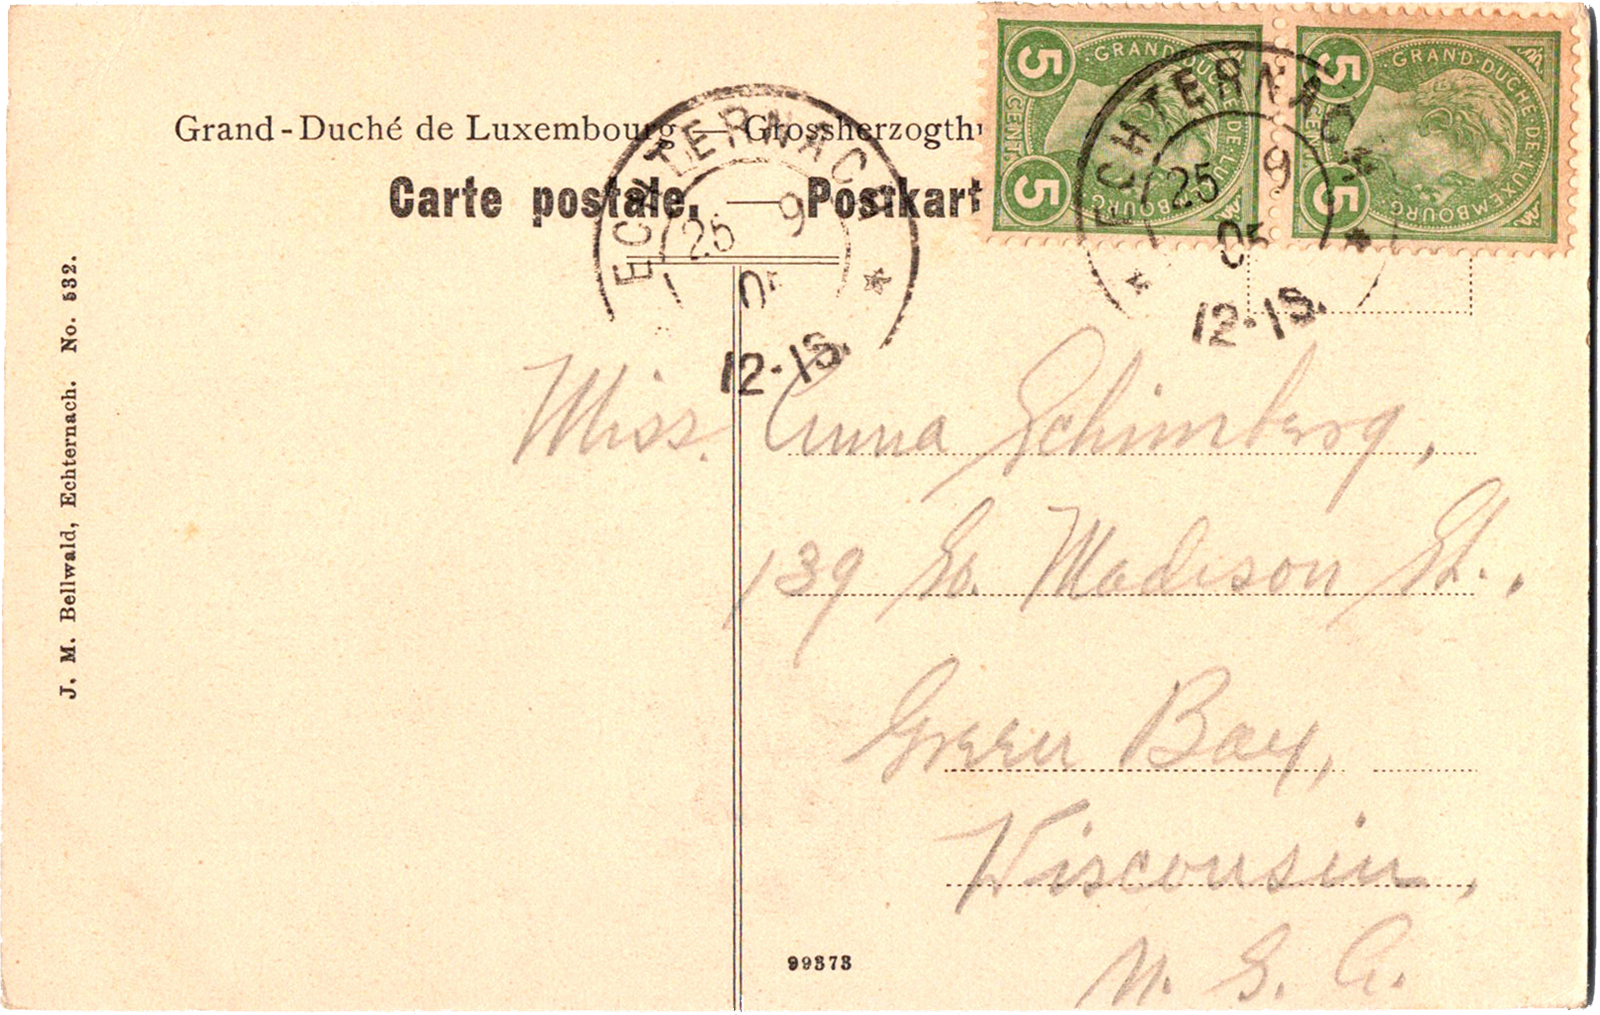 Grand-Duché de Luxembourg — Grossherzogth
Carte postale. — Postkart
5 5
CENT.
GRAND-DUCHÉ DE LUXEMBOURG
5 5
CENT.
GRAND-DUCHÉ-DE-LUXEMBOURG
ECHTERNACH
25 9
05
12-1S.
ECHTERNACH
25 9
05
12-1S.
J. M. Bellwald, Echternach. No. 532.
Miss. Anna Schimberg,
139 So. Madison St.,
Green Bay,
Wisconsin,
U. S. A.
99373